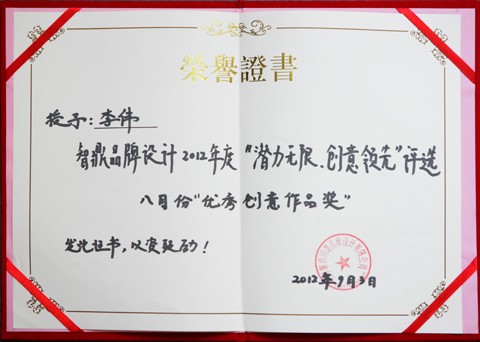 榮譽證書
授予:李伟
智鼎品牌设计2012年度“潜力无限.创意领先”评选
八月份“优秀创意作品奖”
发此证书,以资鼓励!
2012年9月3日